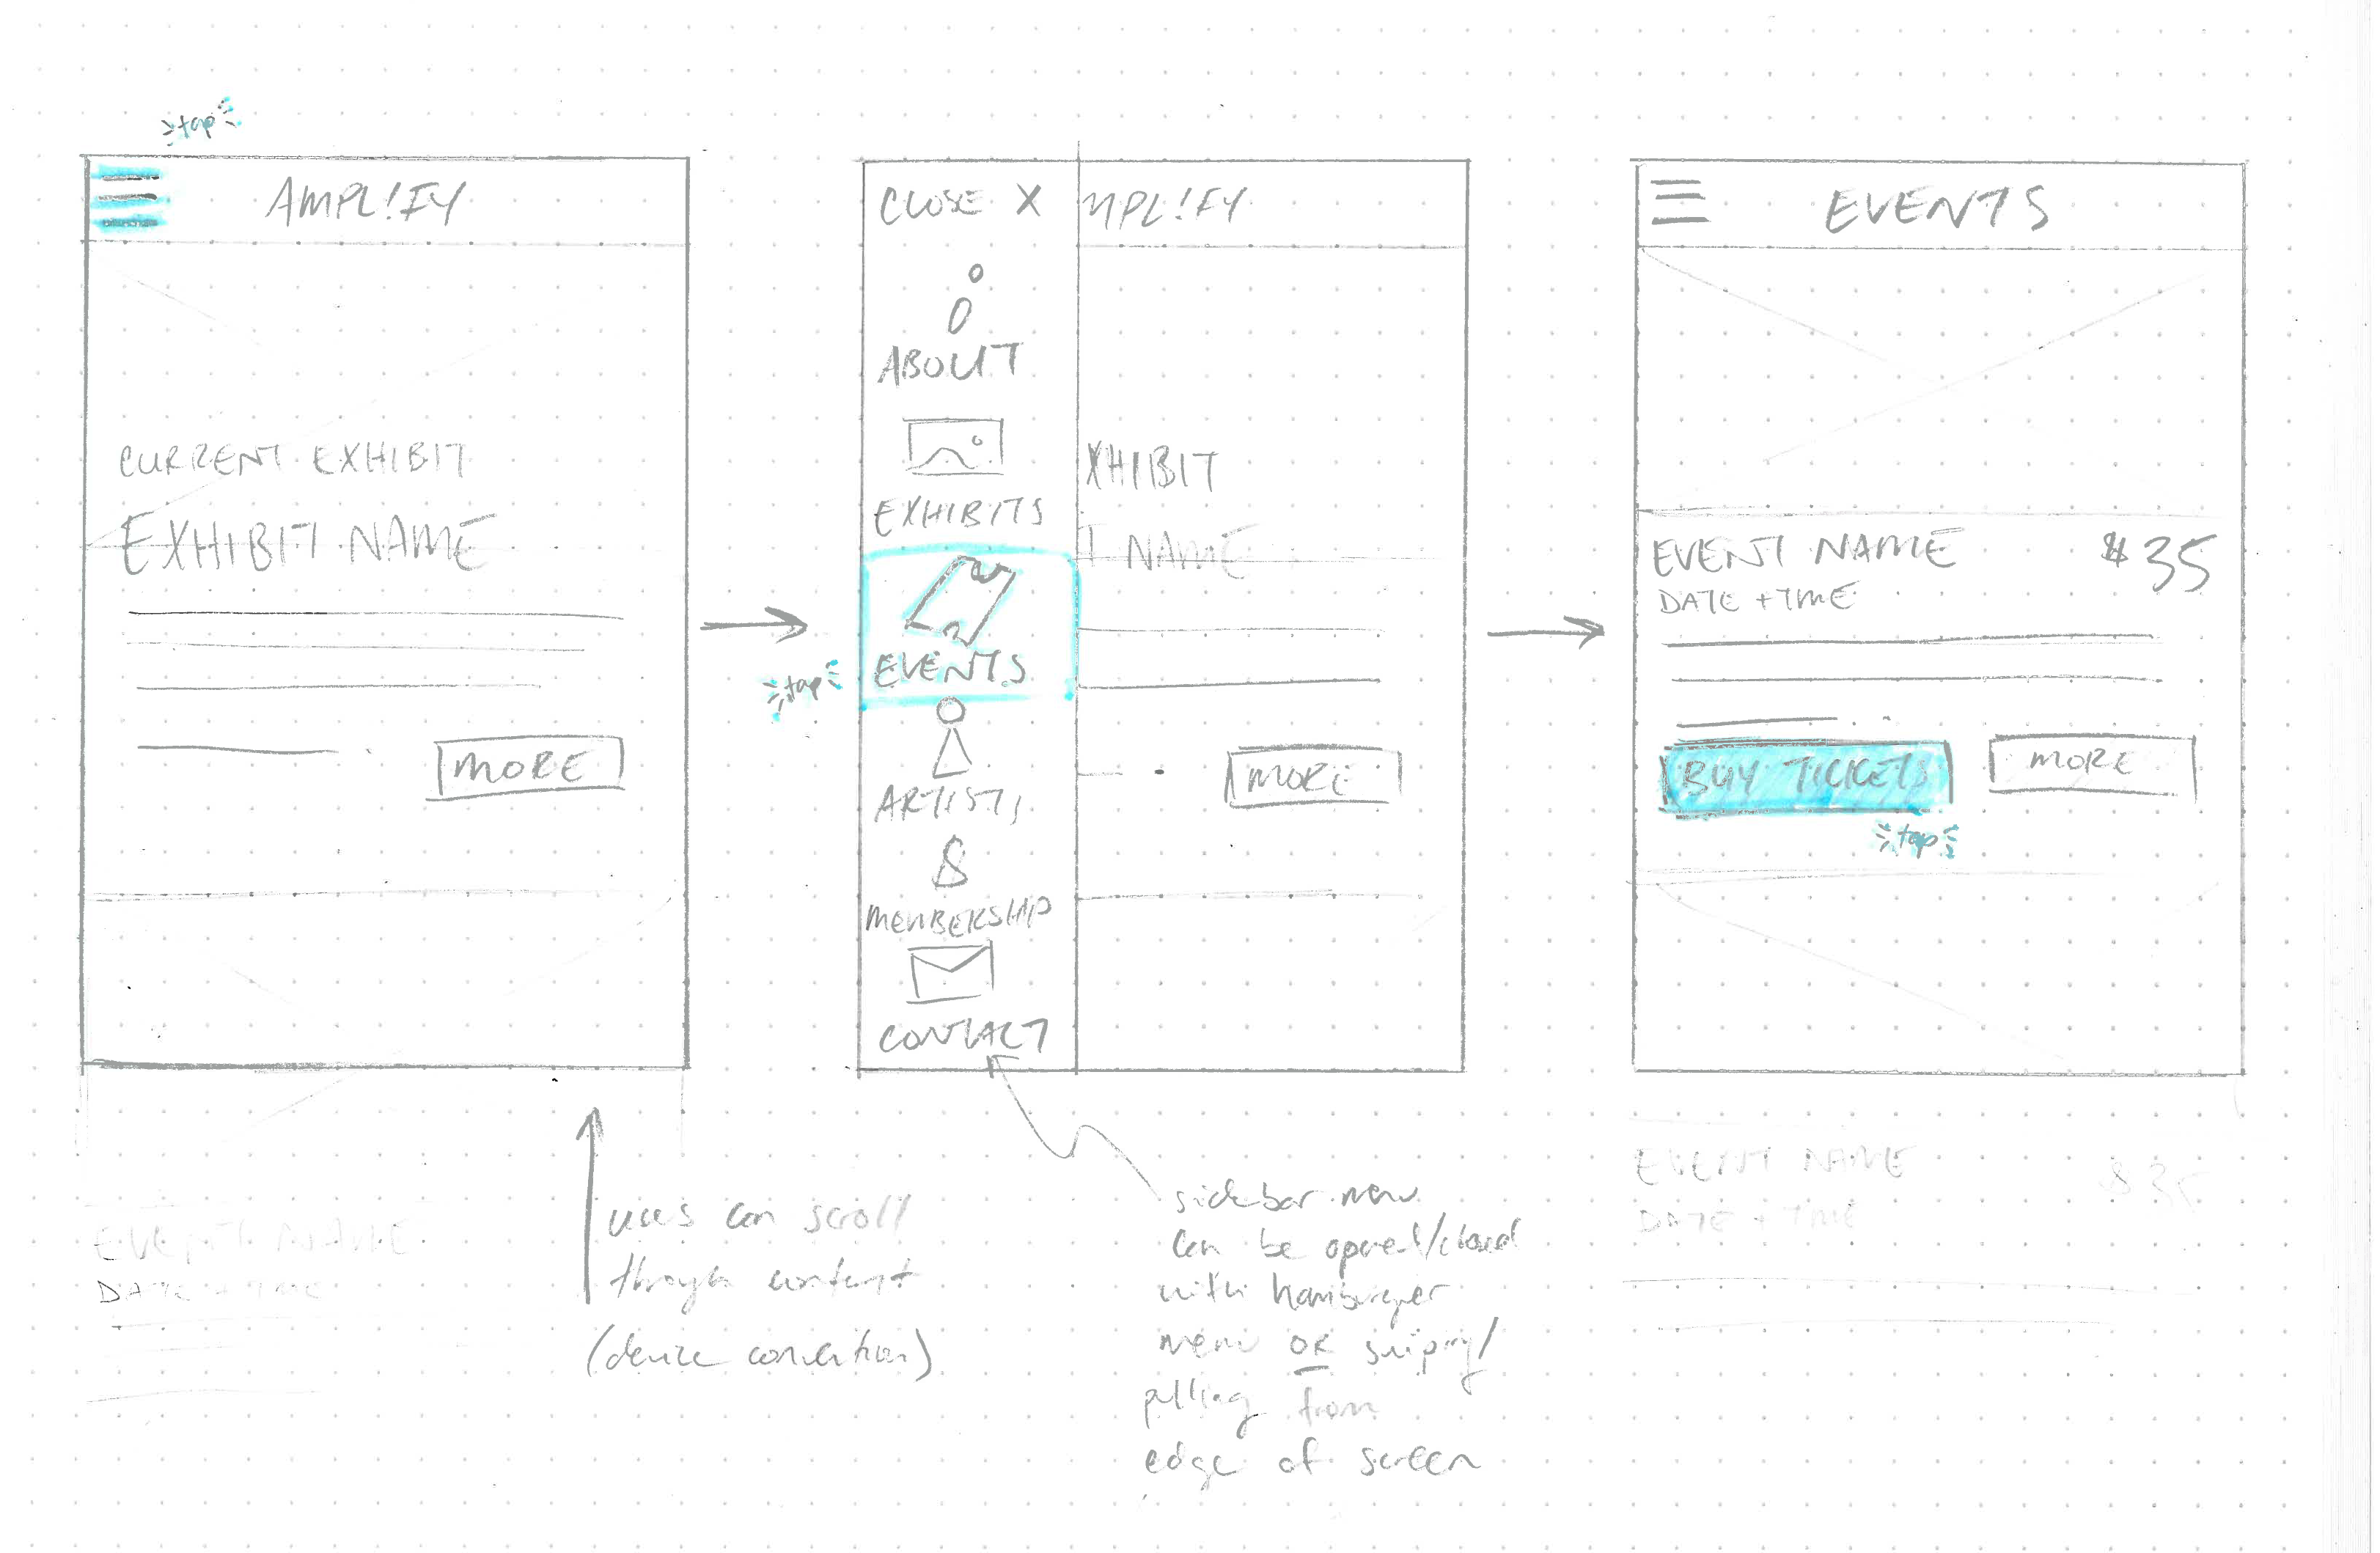 tap
AMPL!FY
CURRENT EXHIBIT
EXHIBIT NAME
MORE
EVENT NAME
DATE + TIME
users can scroll
through content
(device convention)
tap
CLOSE X
MPL!FY
ABOUT
EXHIBITS
EVENTS
ARTISTS
$
MEMBERSHIP
CONTACT
XHIBIT
T NAME
MORE
sidebar menu
can be opened/closed
with hamburger
menu OR swiping/
pulling from
edge of screen
EVENTS
EVENT NAME $35
DATE + TIME
BUY TICKETS MORE
tap
EVENT NAME $35
DATE + TIME